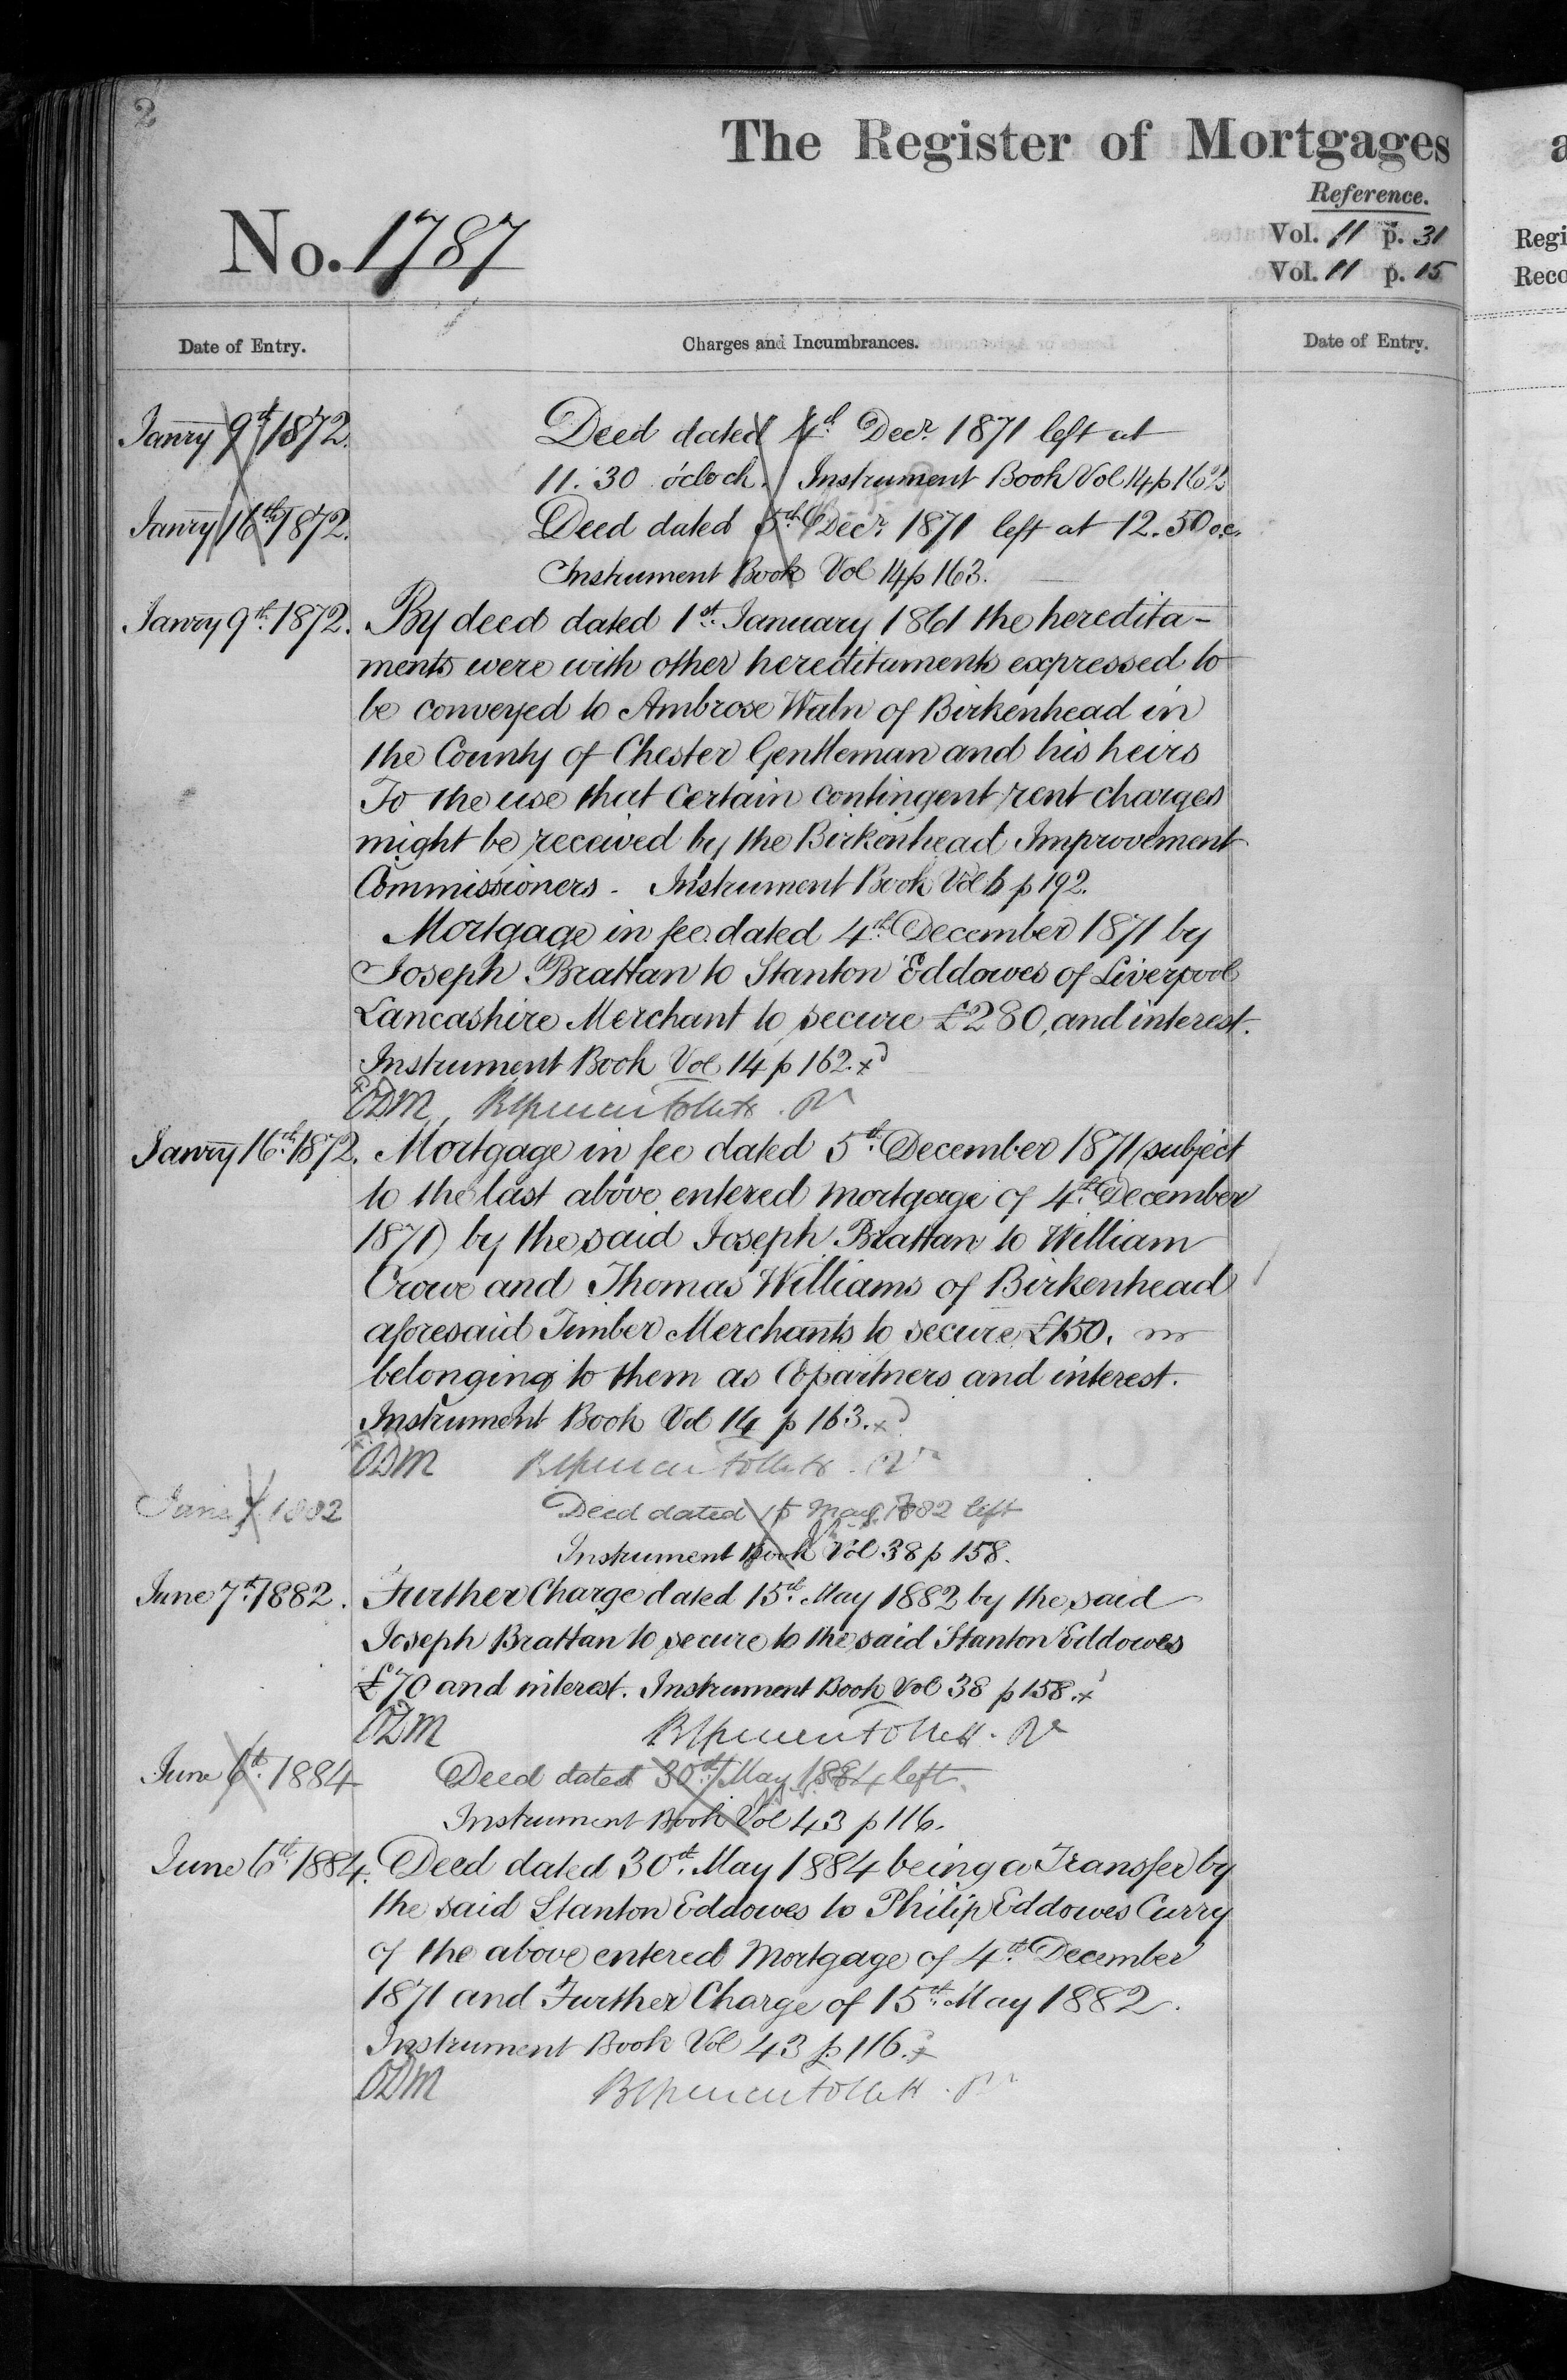 2
The Register of Mortgages
Reference.
No. 1787
Vol. 11 p. 31
Vol. 11 p. 15
Regi
Reco
Date of Entry.
Charges and Incumbrances.
Date of Entry.
Janry 9th 1872.
Deed dated 4th Decr. 1871 left at
11.30 o'clock. Instrument Book Vol 14 p 162
Janry 16th 1872.
Deed dated 5th Decr. 1871 left at 12.50 o.c.
Instrument Book Vol 14 p 163.
Janry 9th 1872.
By deed dated 1st January 1861 the heredita-
ments were with other hereditaments expressed to
be conveyed to Ambrose Waln of Birkenhead in
the County of Chester Gentleman and his heirs
To the use that certain contingent rent charges
might be received by the Birkenhead Improvement
Commissioners. Instrument Book Vol 6 p 192.
Mortgage in fee dated 4th December 1871 by
Joseph Brattan to Stanton Eddowes of Liverpool
Lancashire Merchant to secure £280, and interest.
Instrument Book Vol 14 p 162. x
ODM
Janry 16th 1872.
Mortgage in fee dated 5th December 1871 (subject
to the last above entered mortgage of 4th December
1871) by the said Joseph Brattan to William
Crowe and Thomas Williams of Birkenhead
aforesaid Timber Merchants to secure £150.
belonging to them as Copartners and interest.
Instrument Book Vol 14 p 163. x
ODM
June 7 1882
Deed dated 15 May 1882 left
Instrument Book Vol 38 p 158.
June 7th 1882.
Further Charge dated 15th May 1882 by the said
Joseph Brattan to secure to the said Stanton Eddowes
£70 and interest. Instrument Book Vol 38 p 158. x
ODM
June 6th 1884
Deed dated 30th May 1884 left.
Instrument Book Vol 43 p 116.
June 6th 1884.
Deed dated 30th May 1884 being a Transfer by
the said Stanton Eddowes to Philip Eddowes Curry
of the above entered Mortgage of 4th December
1871 and Further Charge of 15th May 1882.
Instrument Book Vol 43 p 116. x
ODM